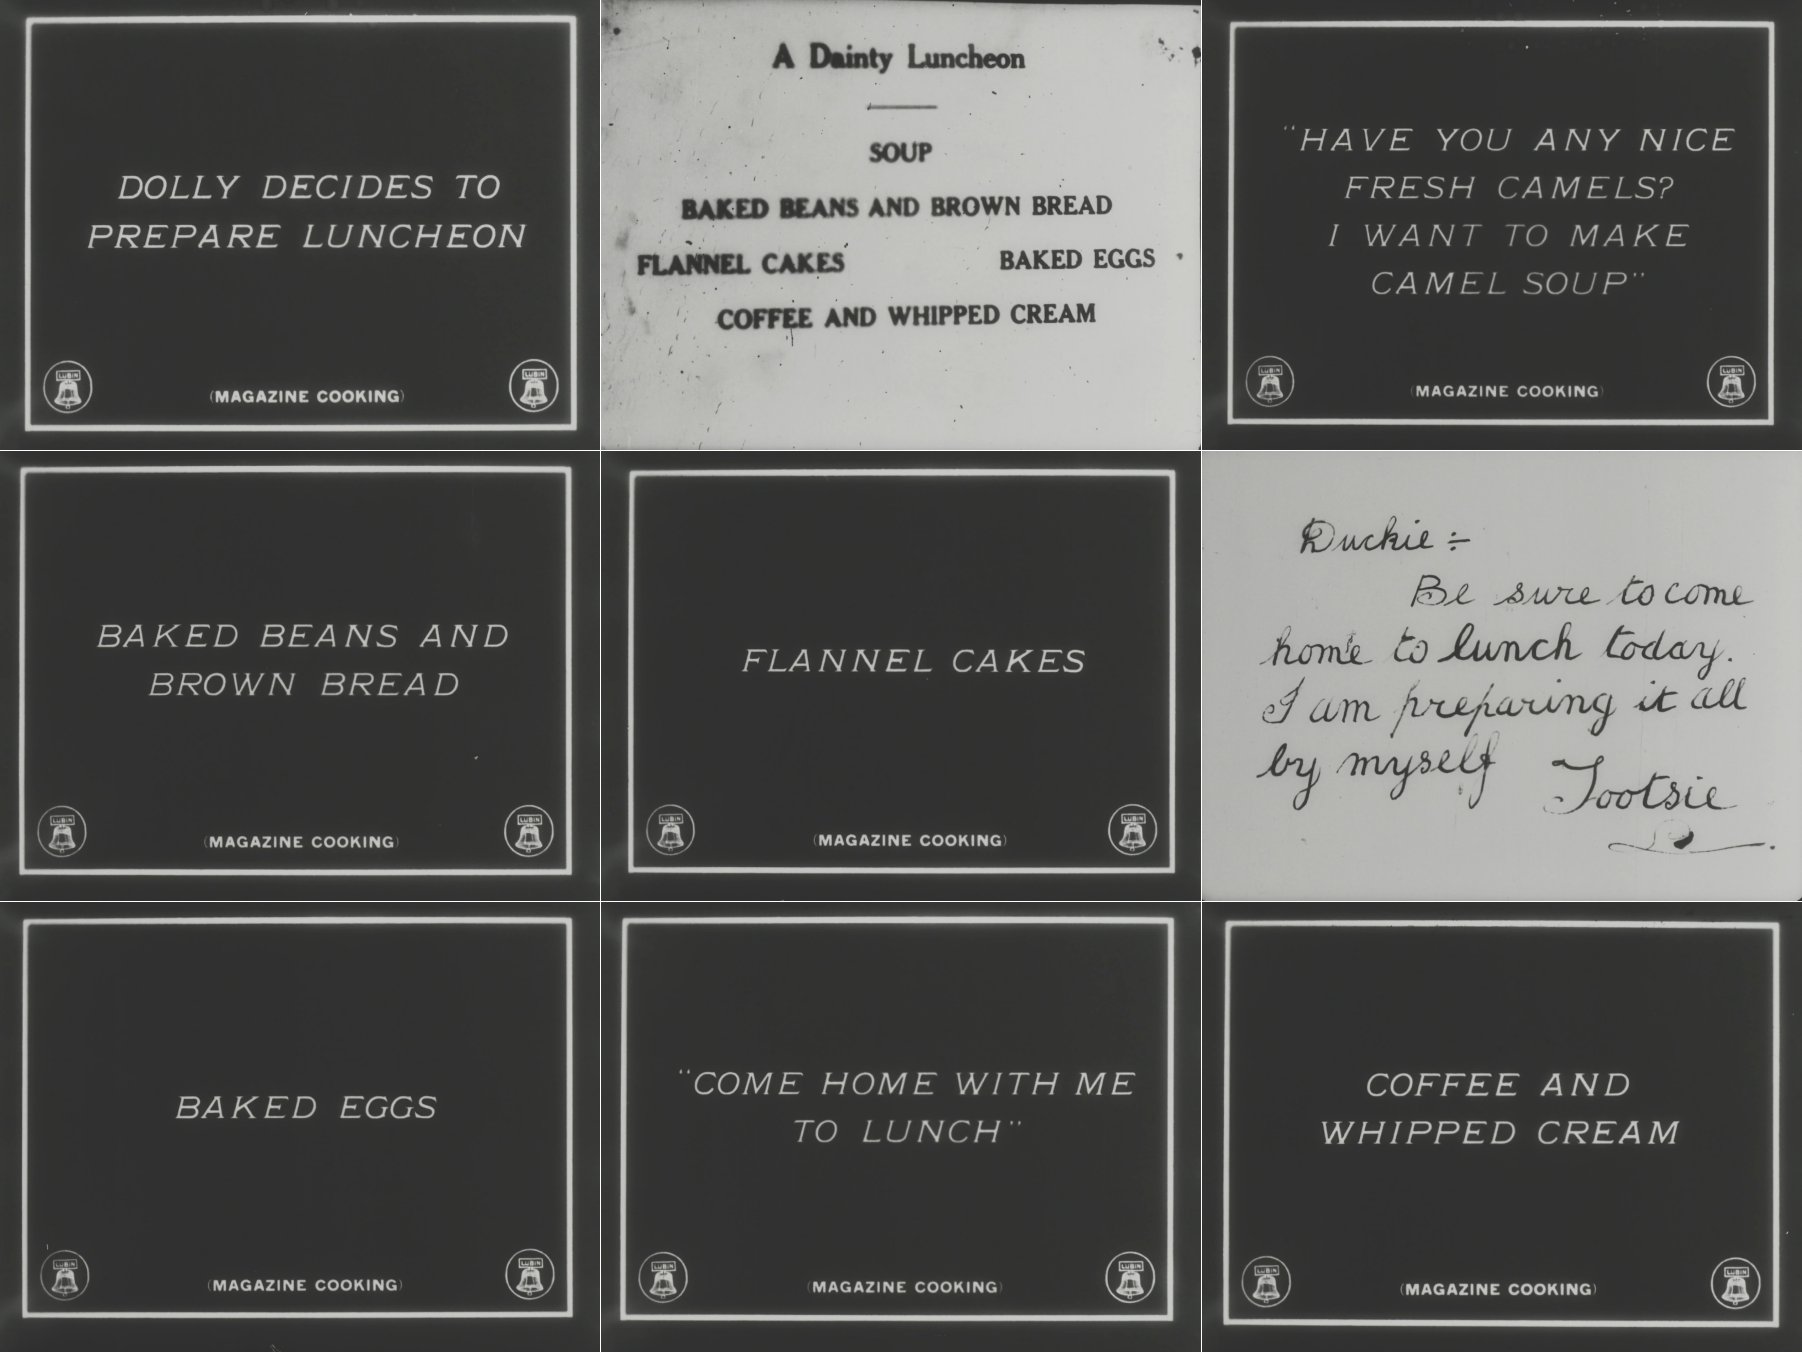 DOLLY DECIDES TO
PREPARE LUNCHEON
LUBIN
LUBIN
(MAGAZINE COOKING)
A Dainty Luncheon
SOUP
BAKED BEANS AND BROWN BREAD
FLANNEL CAKES BAKED EGGS
COFFEE AND WHIPPED CREAM
"HAVE YOU ANY NICE
FRESH CAMELS?
I WANT TO MAKE
CAMEL SOUP"
LUBIN
LUBIN
(MAGAZINE COOKING)
BAKED BEANS AND
BROWN BREAD
LUBIN
LUBIN
(MAGAZINE COOKING)
FLANNEL CAKES
LUBIN
LUBIN
(MAGAZINE COOKING)
Duckie:-
Be sure to come
home to lunch today.
I am preparing it all
by myself
Tootsie
BAKED EGGS
LUBIN
LUBIN
(MAGAZINE COOKING)
"COME HOME WITH ME
TO LUNCH"
LUBIN
LUBIN
(MAGAZINE COOKING)
COFFEE AND
WHIPPED CREAM
LUBIN
LUBIN
(MAGAZINE COOKING)